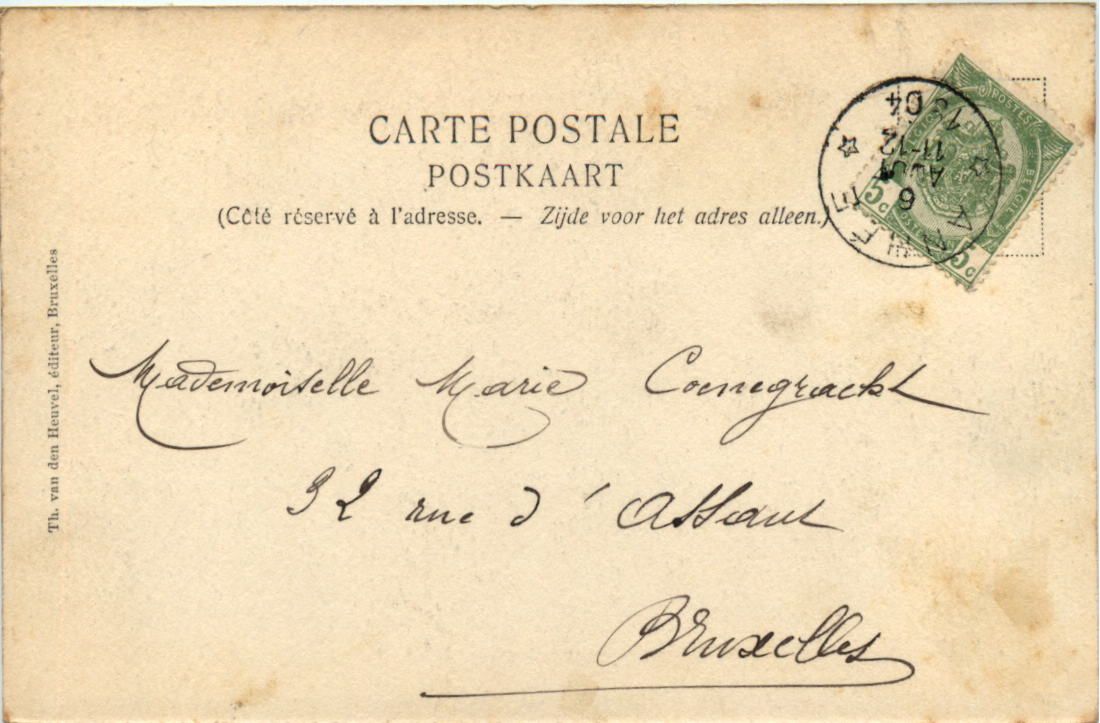 CARTE POSTALE
POSTKAART
(Côté réservé à l'adresse. — Zijde voor het adres alleen.)
POSTES
BELGIE
5c
5c
6
AOUT
11-12
1904
Th. van den Heuvel, éditeur, Bruxelles
Mademoiselle Marie Coenegracht
32 rue d'Assaut
Bruxelles